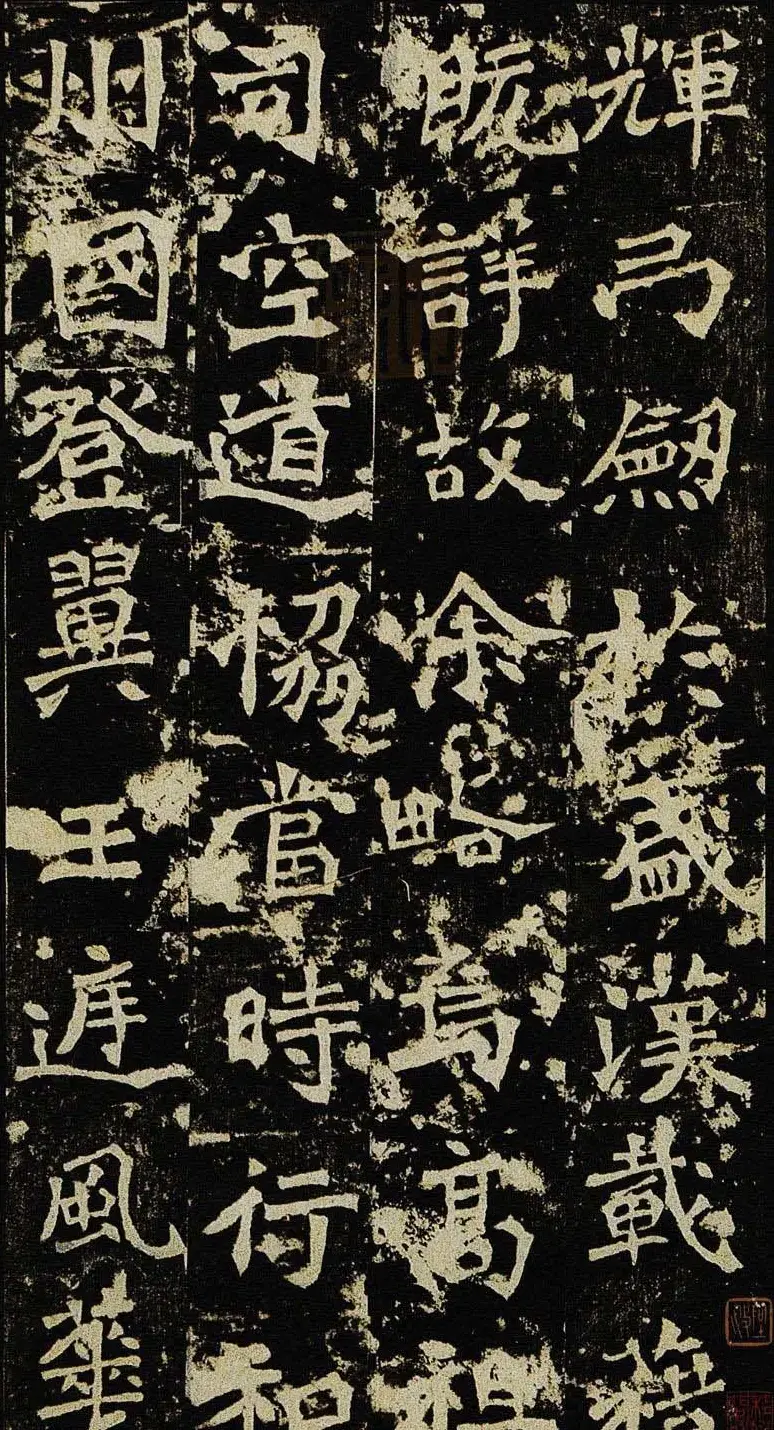 輝弓劒於盛漢載藉
既詳故余略焉高祖
司空道協當時行和
州國登翼王遊風華